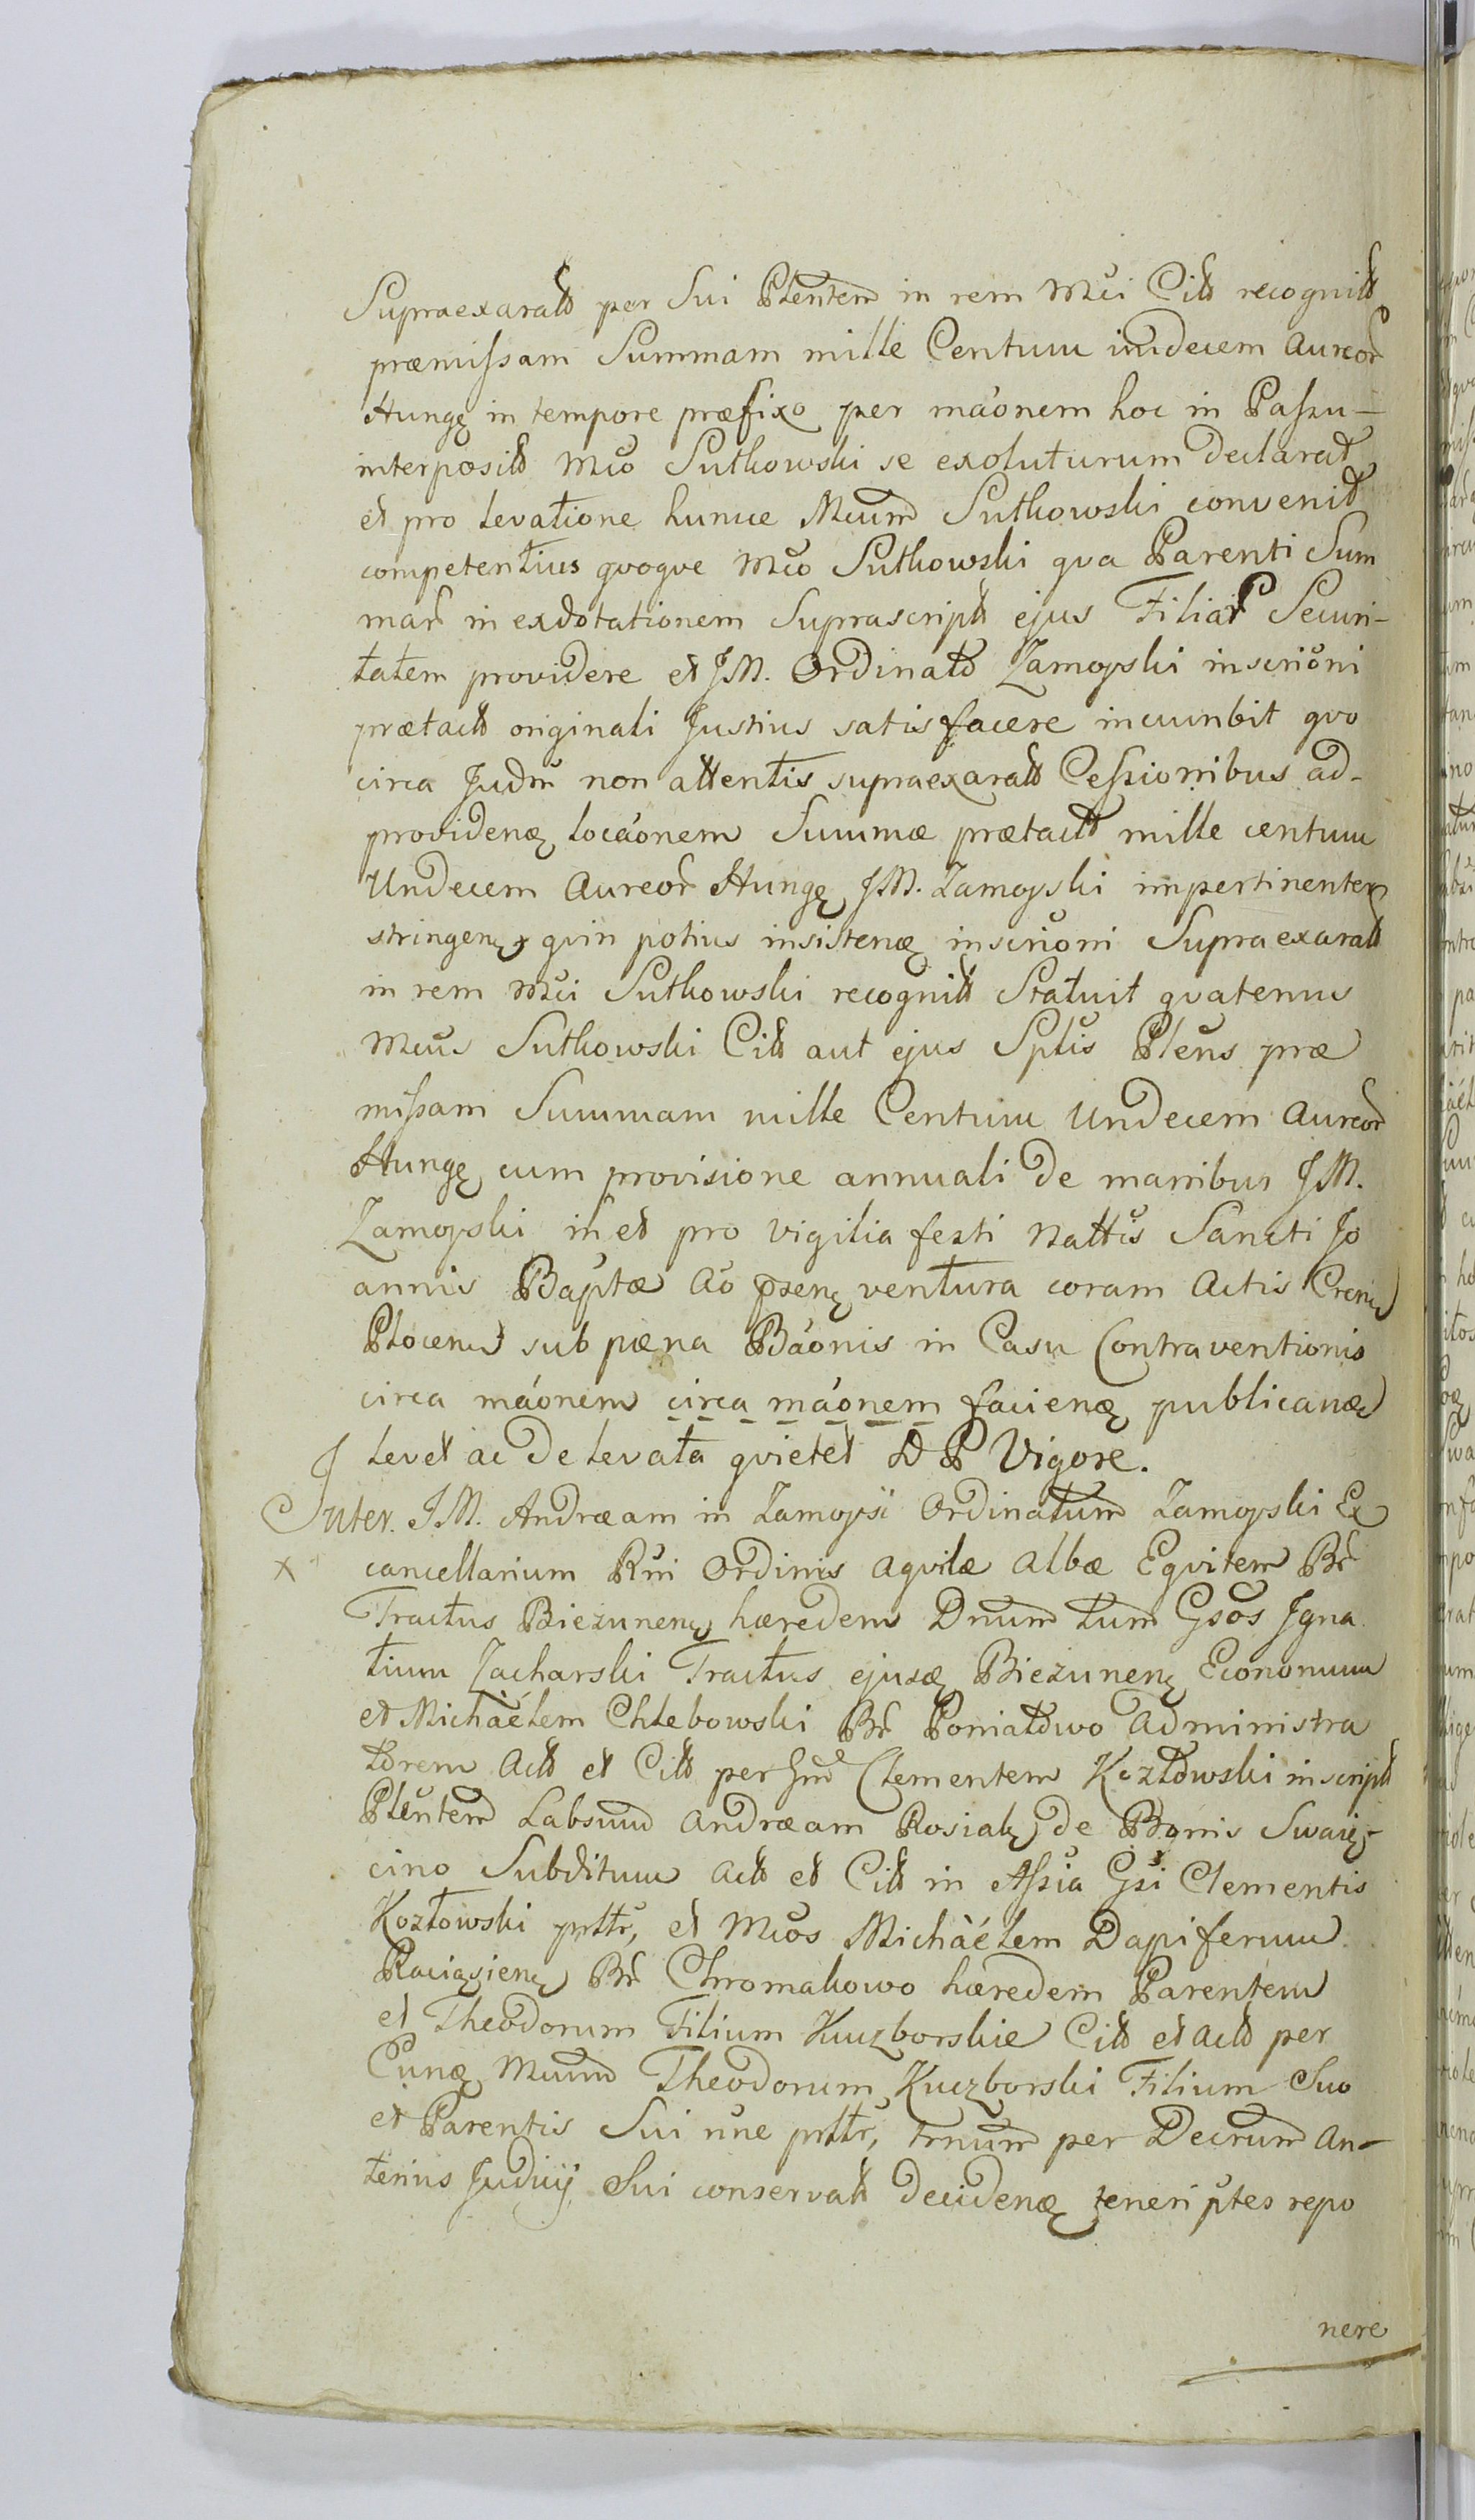 Supraexaratt per Sui Pleñtem in rem Mći Citt recognitt
præmissam Summam mille Centum undecem Aureor
Hungę in tempore præfixo per máonem hoc in Passu-
interposítt Mćo Sutkowski se exoluturum declarat
et pro levatione hunce Mćum Sutkowski convenit
competentius qvoqve Mćo Sutkowski qva Parenti Sum
mar in exdotationem Suprascriptt ejus Filiar Securi-
tatem providere et JM. Ordinato Zamoyski inscrióni
prætactt originali Justius satisfacere incumbit qvo
circa Judm̃ non attentis supraexaratt Cessionibus ad-
providenę locáonem Summæ prætactt mille centum
Undecem Aureor Hungę JM. Zamoyski impertinenter
stringenę qvin potius insistenę inscrióni Supraexaratt
in rem Mći Sutkowski recognitt Statuit qvatenus
Mćus Sutkowski Citt aut ejus Splis Pleñs præ
missam Summam mille Centum Undecem Aureor
Hungę cum provisione annuali de manibus JM.
Zamoyski in et pro vigilia festi Nattis Sancti Jo
annis Baptæ Ao pzenę ventura coram Actis Crens
Plocens sub pæna Báonis in Casu Contraventionis
circa máonem circa máonem facienę publicanę
levet ac de levata qvietet D P Vigore.
Inter. JM. Andræam in Zamoysi Ordinatum Zamoyski Ex
cancellarium Rñi Ordinis Aqvilæ Albæ Eqvitem Br
Tractus Biezunenę hæredem Dnum tum Gsos Igna
tium Zacharski Tractus ejusę Biezunenę Economum
et Michaélem Chlebowski Br Poniatowo Administra
torem Actt et Citt per Gm̃ Clementem Kozłowski inscriptt
Pleñtem Labsum Andræam Rosiak de Bonis Swaię-
cino Subditum Actt et Citt in Assia Gsi Clementis
Kozłowski prttr, et Mćos Michaélem Dapiferum
Raciązienę Br Chromakowo hæredem Parentem
et Theodorum Filium Kuczborskie Citt et Actt per
Eunę Mćum Theodorum Kuczborski Filium Suo
et Parentis Sui nñe prttr, trnum per Decrum An-
terius Judicij Sui conservatt decidenę teneri ptes repo
nere